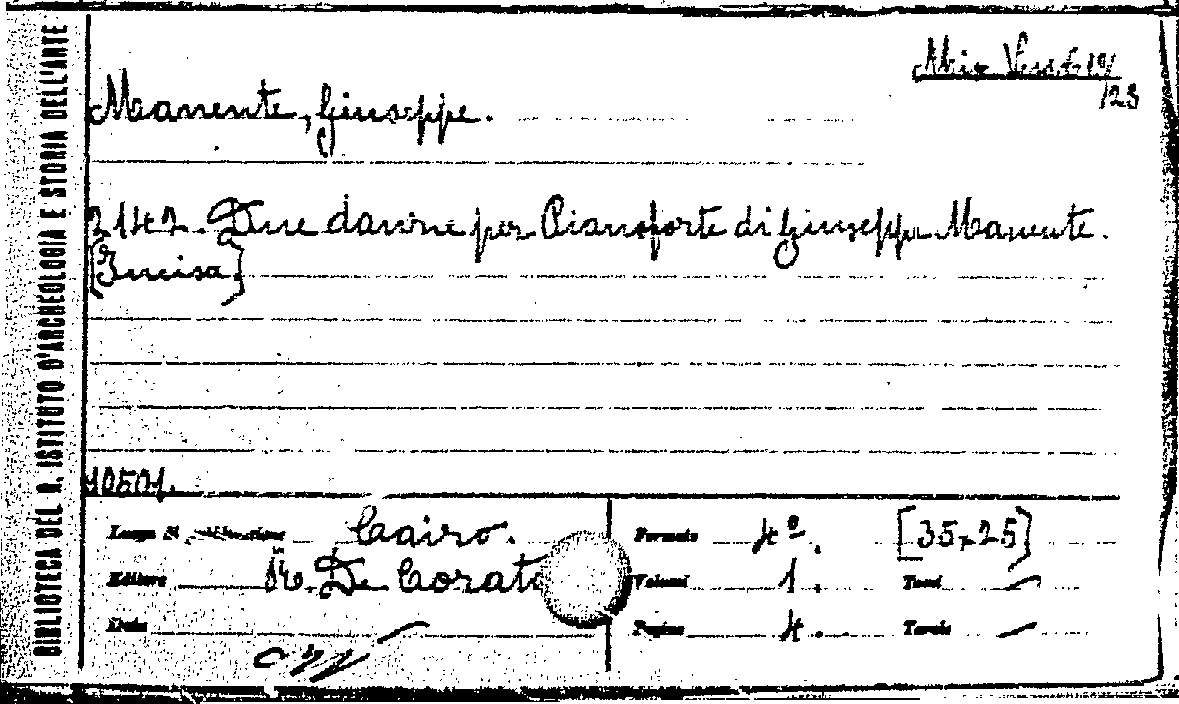 BIBLIOTECA DEL R. ISTITUTO D'ARCHEOLOGIA E STORIA DELL'ARTE
/23
Manente, Giuseppe.
2142. Due danze per Pianoforte di Giuseppe Manente.
[Incisa]
10501.
Luogo di pubblicazione Cairo.
Editore De Corato
Data —
Formato 4º. [35x25]
Volumi 1. Tomi —
Pagine 4. Tavole —